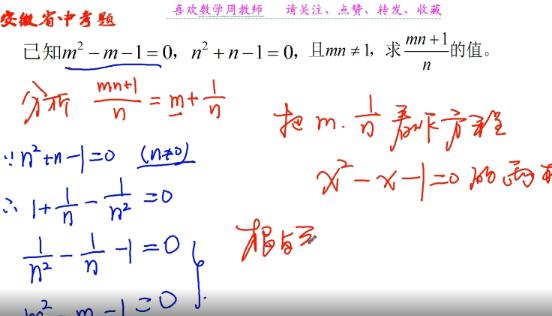 安徽省中考题
喜欢数学周教师 请关注、点赞、转发、收藏
已知m²－m－1＝0，n²＋n－1＝0，且mn≠1，求(mn+1)/n的值。
分析 (mn+1)/n = m + 1/n
把 m. 1/n 看作方程
x² - x - 1 = 0 的两根
∵ n² + n - 1 = 0 (n≠0)
∴ 1 + 1/n - 1/n² = 0
1/n² - 1/n - 1 = 0
m² - m - 1 = 0
根与